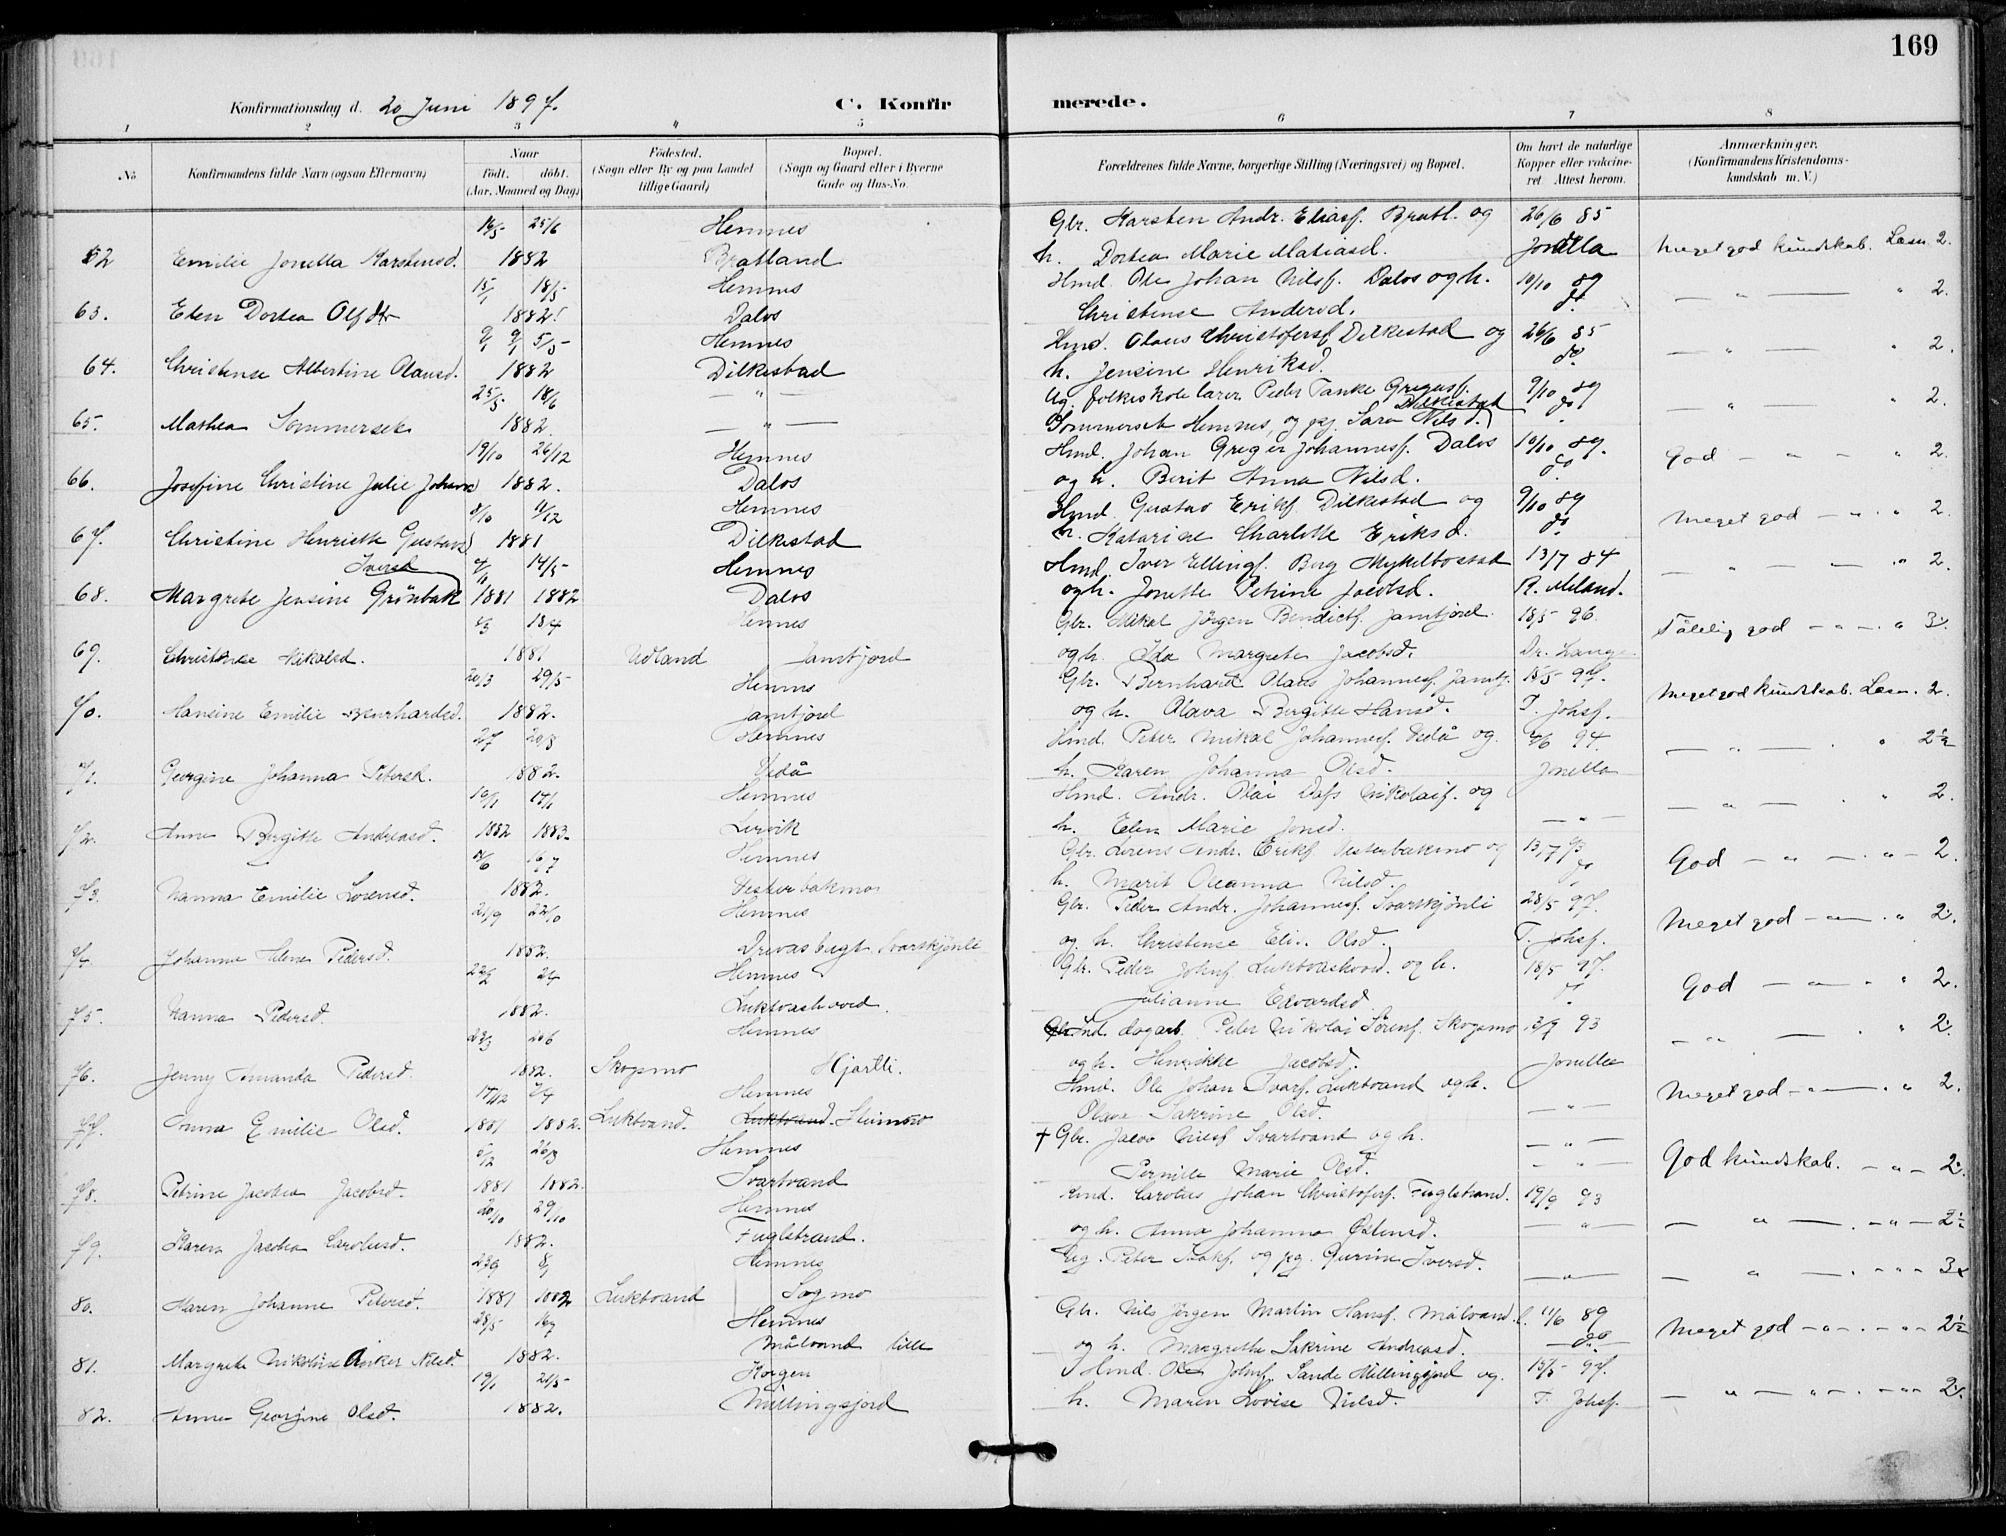 169
Konfirmationsdag d. 20 Juni 1897.
C. Konfirmerede.
1 2 3 4 5 6 7 8
No
Konfirmandens fulde Navn (ogsaa Efternavn)
Naar
födt. döbt.
(Aar, Maaned og Dag)
Födested.
(Sogn eller By og paa Landet
tillige Gaard)
Bopæl.
(Sogn og Gaard eller i Byerne
Gade og Hus-No.
Forældrenes fulde Navne, borgerlige Stilling (Næringsvei) og Bopæl.
Om havt de naturlige
Kopper eller vaccine-
ret Attest herom.
Anmærkninger.
(Konfirmandens Kristendoms-
kundskab m. V.)
25/6 Hemnes Gbr. Karsten Andr. Eliasf. Bratl. og 26/6 85
62 Emilie Jonetta Karstensd. 1882 Bratland h. Dortea Marie Matiasd. Meget god kundskab. Læsn. 2.
15/1 18/5 Hemnes Hmd. Ole Johan Nilsf. Dalos og h. 10/10 89
63. Elen Dortea Olsdtr 1882 Dalos Christense Andersd. do — " — " 2.
5/5 Hemnes Hmd. Olaus Christofersf. Dilkestad og 26/6 85
64. Christense Albertine Olausd. 1882 Dilkestad h. Jensine Henriksd. do — " — " 2.
25/5 18/6 — " — Ug. folkeskolelærer Peder Tanke Gregusf. 9/10 89
65. Mathea Sommerseth 1882 — " — Sommerset Hemnes, og pg. Sara Nilsd. Dilkestad do — " — " 2.
19/10 26/12 Hemnes Hmd. Johan Greger Johannesf. Dalos 10/10 89.
66. Josefine Christine Julie Johansd 1882. Dalos og h. Berit Anna Nilsd. do God — " — " 2.
8/10 11/12 Hemnes Hmd. Gustav Erikf. Dilkestad og 9/10 89
67. Christine Henriette Gustavsd 1881 Dilkestad h. Katarine Charlotte Eriksd. do Meget god — " . " 2.
Iversd 14/5 Hemnes Hmd. Iver Ellingf. Berg Mykelbostad 13/7 84
68. Margrete Jensine Grönbæk 1881 1882 Dalos og h. Jonette Petrine Jacobsd. R. Meland. — " — — " 2.
18/4 Hemnes Gbr. Mikal Jörgen Bendictf. Jamtjord 18/5 96.
69. Christense Mikalsd. 1881 Udland Jamtjord og h. Ida Margrete Jacobsd. Dr. Lange Tålelig god — " — . " 3.
20/3 29/5 Hemnes Gbr. Bernhard Olaus Johannesf. Jamtj. 18/5 97.
70. Hansine Emilie Bernhardsd. 1882. Jamtjord og h. Olava Bergitte Hansd. T. Johsf. Meget god kundskab. Læsn. 2.
2/7 20/8 Hemnes Hmd. Peter Mikal Johannesf. Vedå og 94.
71. Georgine Johanna Petersd. 1882. Vedå h. Karen Johanna Olsd. Jonetta — " — . " 2½
17/1 Hemnes Hmd. Andr. Olai Dass Nikolaif. og
72. Anne Bergitte Andreasd. 1882 1883. Lervik h. Elen Marie Jonsd. — " — — " — . " 2.
16/7 Hemnes Gbr. Lorens Andr. Erikf. Vesterbakmo og 13/7 93
73. Nanna Emilie Lorensd. 1882. Vesterbakmo h. Marit Oleanna Nilsd. do God — " — . " — 2.
21/9 22/10 Hemnes Gbr. Peder Andr. Johannesf. Svartskjönli 28/5 97.
74. Johanna Elene Pedersd. 1882. Drevasbugt Svartskjönli og h. Christense Elis. Olsd. T. Johsf. Meget god — " — . " 2.
22/2 2/4 Hemnes Gbr. Peder Johnf. Luktvashoved. og h. 18/5 97.
75. Nanna Pedersd. 1882. Luktvashoved. Julianne Edvardsd. do God — " — . " 2.
23/3 20/6 Hemnes Ind. dagarb. Peder Nikolai Sörenf. Skogsmo 13/9 93
76. Jenny Amanda Pedersd. 1882. Skogsmo Hjartli. og h. Henrikke Jacobsd. Jonetta — " — . " 2.
17/12 Hemnes Hmd. Ole Johan Ivarf. Luktvand og h.
77. Anna Emilie Olsd. 1881 1882. Luktvand. Olava Sakrine Olsd. — " — Meget god — " — . " 2.
26/3 Hemnes + Gbr. Jacob Nilsf Svartvand og h. — " —
78. Petrine Jacobea Jacobsd. 1881 1882. Svartvand Pernille Marie Olsd. — " — God kundskab. — " — 2.
20/10 29/10 Hemnes Hmd. Carolus Johan Christofersf. Fuglstrand. 19/9 93
79. Karen Jacobea Carolusd. 1882. Fuglstrand. og h. Anna Johanna Östensd. — " — — " — . — " — 2½
Hemnes Ug. Peter Isakf. og pg. Gurine Iversd.
80. Karen Johanne Petersd. 1881 1882 Luktvand Sogmo — " — — " — . " " " 3
28/5 Hemnes Gbr. Nils Jörgen Martin Hansf. Målvand. l. 11/6 89
81. Margrete Nikoline Anker Nilsd. 1882. Målvand lille og h. Margrethe Sakrine Andreasd. do Meget god — " — . — " — 2½
19/1 Korgen Hmd. Ole Johnf. Sande Millingsjord og 18/5 97.
82. Anne Georgine Olsd. 1882. Millingsjord h. Maren Lovise Nilsd. T. Johsf. — " — " — . — " — 2.